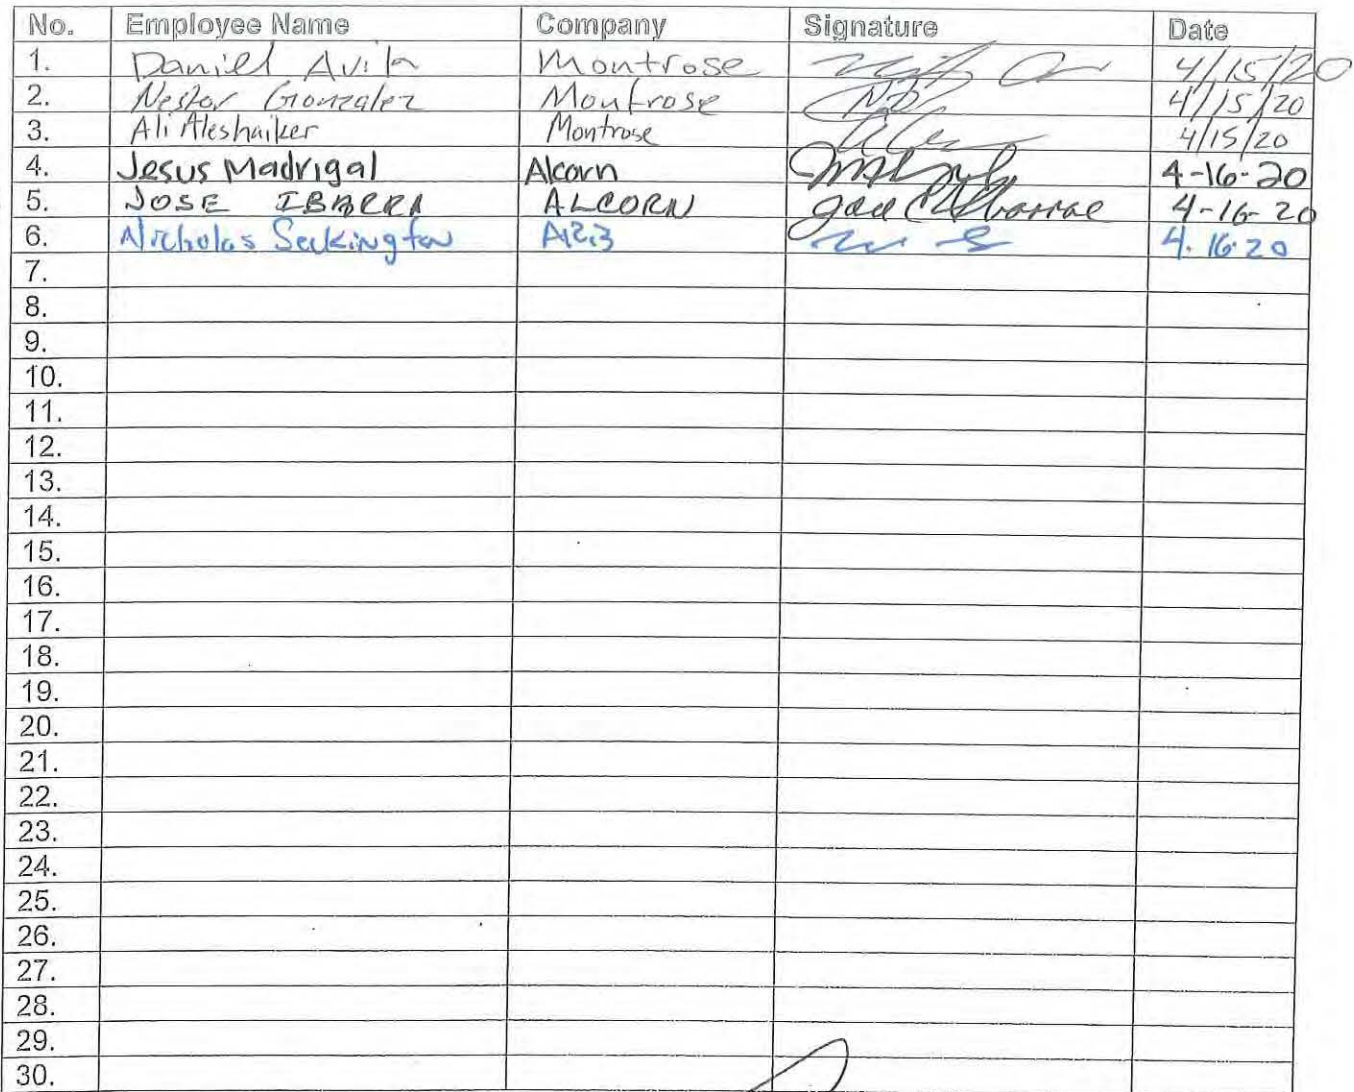 No. Employee Name Company Signature Date
1. Daniel Avila Montrose 4/15/20
2. Nestor Gonzalez Montrose 4/15/20
3. Ali Aleshaiker Montrose 4/15/20
4. Jesus Madrigal Alcorn 4-16-20
5. JOSE IBARRA ALCORN 4-16-20
6. Nicholas 4.16.20
7.
8.
9.
10.
11.
12.
13.
14.
15.
16.
17.
18.
19.
20.
21.
22.
23.
24.
25.
26.
27.
28.
29.
30.